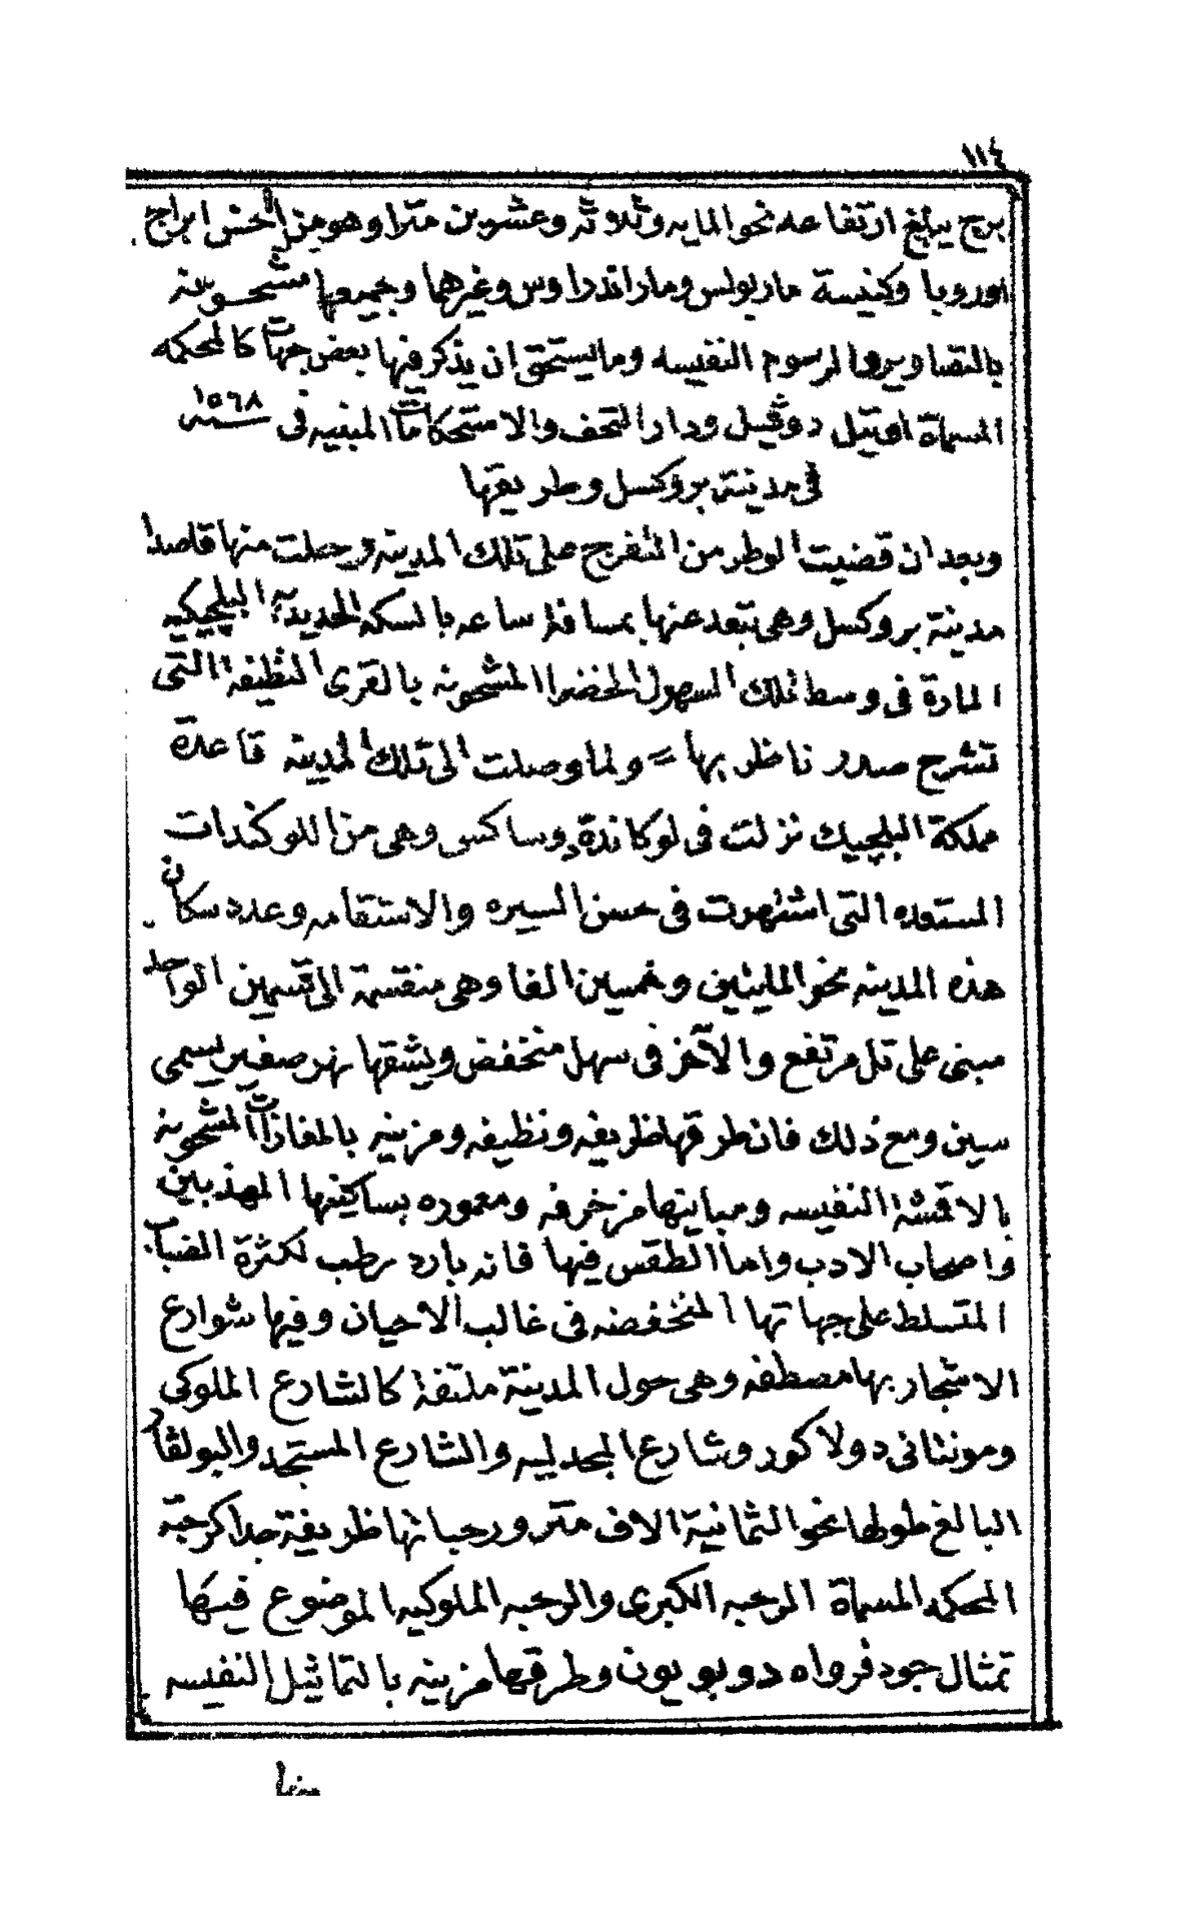 ١١٤
برج يبلغ ارتفاعه نحو المايه وثلاثه وعشرين مترا وهو من احسن ابراج
اوروبا وكنيسة ماربولس وماراندراوس وغيرهما وجميعها مشحونه
بالتصاوير والرسوم النفيسه ومايستحق ان يذكر فيها بعض جهات كالمحكمه
المسماة اوتيل دوفيل ودار التحف والاستحكامات المبنيه فى سنه ١٥٦٨
فى مدينة بروكسل وطريقها
وبعد ان قضيت الوطر من التفرج على تلك المدينه رحلت منها قاصدا
مدينة بروكسل وهى تبعد عنها بمسافة ساعه بالسكه الحديدية البلجيكيه
المارة فى وسط تلك السهول الخضرا المشحونه بالقرى النظيفة التى
تشرح صدر ناظر بها = ولما وصلت الى تلك المدينه قاعدة
مملكة البلجيك نزلت فى لوكاندة دوساكس وهى من اللوكندات
المستعده التى اشتهرت فى حسن السيره والاستقامه وعدد سكان
هذه المدينه نحو المليئين وخمسين الفا وهى منقسمة الى قسمين الواحد
مبنى على تل مرتفع والآخر فى سهل منخفض ويشقها نهر صغير يسمى
سين ومع ذلك فان طرقها ظريفه ونظيفه ومزينه بالمغازات المشحونه
بالاقمشة النفيسه ومبانيها مزخرفه ومعموره بساكنيها المهذبين
واصحاب الادب واما الطقس فيها فانه بارد رطب لكثرة الضباب
المتسلط على جهاتها المنخفضه فى غالب الاحيان وفيها شوارع
الاشجار بها مصطفه وهى حول المدينة ملتفة كالشارع الملوكى
ومونتانى دولاكور وشارع المجدليه والشارع المستجد والبولڤار
البالغ طولها نحو الثمانية الاف متر ورحباتها ظريفة جدا كرحبة
المحكمه المسماة الرحبه الكبرى والرحبه الملوكيه الموضوع فيها
تمثال جودفرواه دوبويون وطرقها مزينه بالتماثيل النفيسه
منها